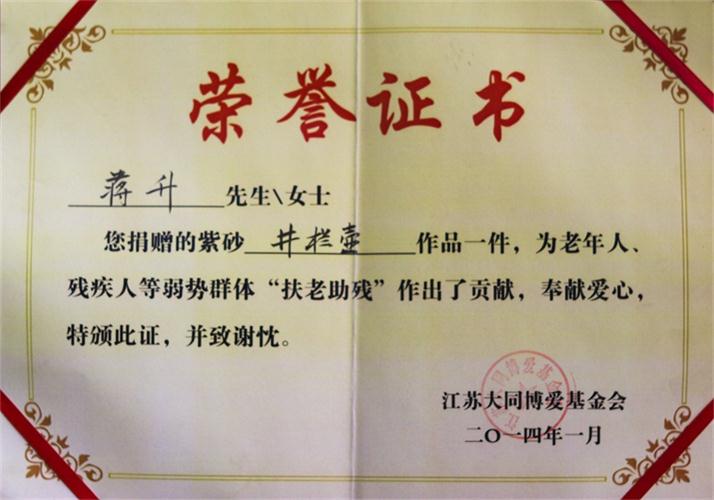 荣誉证书
蒋升 先生\女士
您捐赠的紫砂 井栏壶 作品一件，为老年人、
残疾人等弱势群体“扶老助残”作出了贡献，奉献爱心，
特颁此证，并致谢忱。
江苏大同博爱基金会
二〇一四年一月